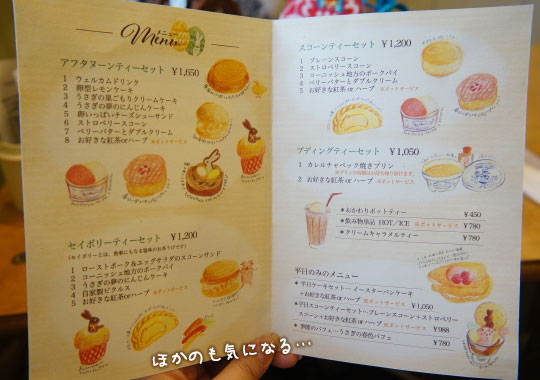 メニュー
Menu
アフタヌーンティーセット ¥1,650
1 ウェルカムドリンク
2 卵型レモンケーキ
3 うさぎの巣ごもりクリームケーキ
4 うさぎの夢のにんじんケーキ
5 卵いっぱいチーズシューサンド
6 ストロベリースコーン
7 ベリーバターとダブルクリーム
8 お好きな紅茶orハーブ ※ポットサービス
セイボリーティーセット ¥1,200
1 ローストポーク&エッグサラダのスコーンサンド
2 コーニッシュ地方のポークパイ
3 うさぎの夢のにんじんケーキ
4 自家製ピクルス
5 お好きな紅茶orハーブ ※ポットサービス
スコーンティーセット ¥1,200
1 プレーンスコーン
2 ストロベリースコーン
3 コーニッシュ地方のポークパイ
4 ベリーバターとダブルクリーム
5 お好きな紅茶orハーブ ※ポットサービス
プディングティーセット ¥1,050
1 カレルチャペック焼きプリン
2 お好きな紅茶 or ハーブ ※ポットサービス
*おかわりポットティー ¥450
*飲み物単品 HOT/ICE ※ポットサービス ¥780
*クリームキャラメルティー ¥780
平日のみのメニュー
*平日ケーキセット-イースターパンケーキ
+お好きな紅茶 or ハーブ ※ポットサービス ¥1,050
*平日スコーンティーセット-プレーンスコーン+ストロベリー
スコーン+お好きな紅茶 or ハーブ ※ポットサービス ¥988
*季節のパフェ-うさぎの春色パフェ ¥780
ほかのも気になる…